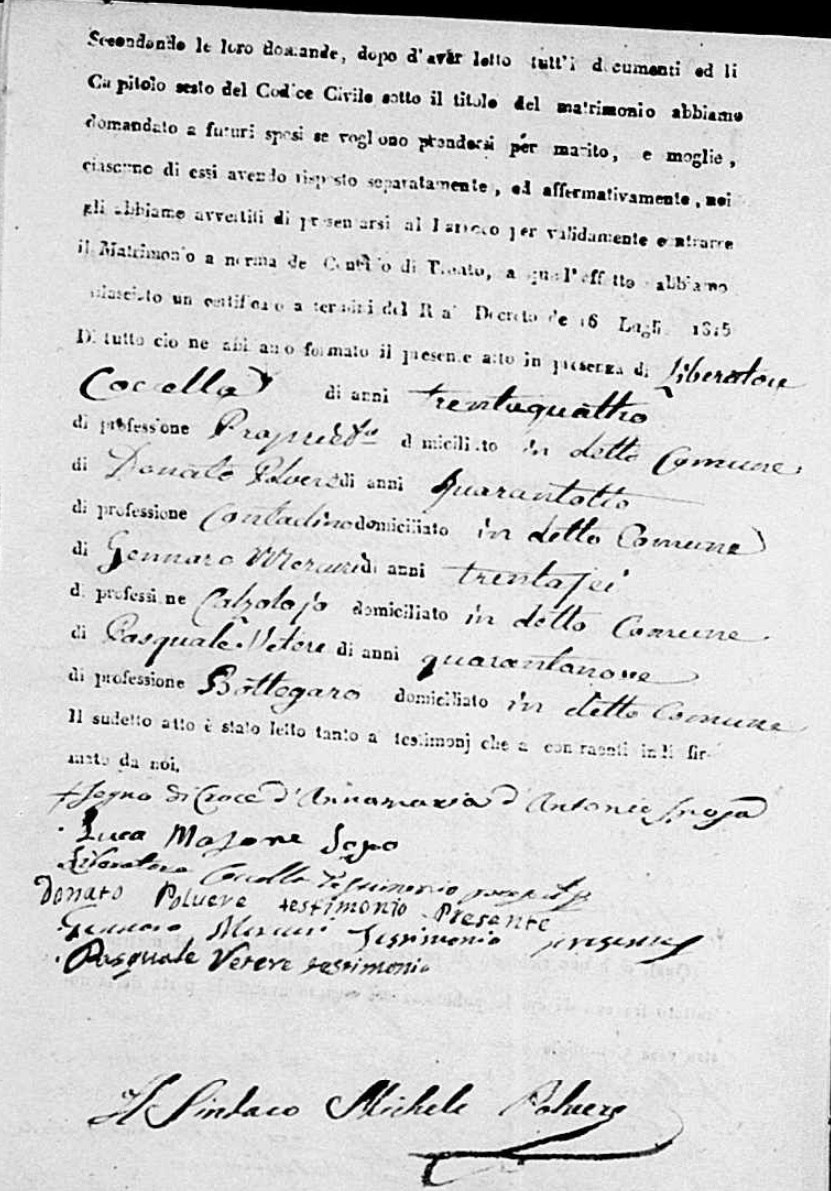 Secondando le loro domande, dopo d'aver letto tutt'i documenti ed li
Capitolo sesto del Codice Civile sotto il titolo del matrimonio abbiamo
domandato a futuri sposi se vogliono prendersi per marito, e moglie,
ciascuno di essi avendo risposto separatamente, ed affermativamente, noi
gli abbiamo avvertiti di presentarsi al Parroco per validamente contrarre
il Matrimonio a norma del Concilio di Trento, a qual'effetto abbiamo
rilasciato un certificato a termini del Real Decreto de 16 Luglio 1815
Di tutto cio ne abbiamo formato il presente atto in presenza di Liberatore
Coccella di anni trentaquattro
di professione Propriet.o domiciliato in detto Comune
di Donato Polvere di anni quarantotto
di professione Contadino domiciliato in detto Comune
di Gennaro Mercuri di anni trentasei
di professione Calzolajo domiciliato in detto Comune
di Pasquale Vetere di anni quarantanove
di professione Bottegaro domiciliato in detto Comune
Il sudetto atto è stato letto tanto a' testimonj che a contraenti indi fir-
mato da noi.
+ Segno di Croce d'Annamaria d'Antonio sposa
Luca Masone Sposo
Liberatore Coccella Testimonio
Donato Poluere testimonio Presente
Gennaro Mercuri Testimonio presente
Pasquale Vetere testimonio
Il Sindaco Michele Polvere